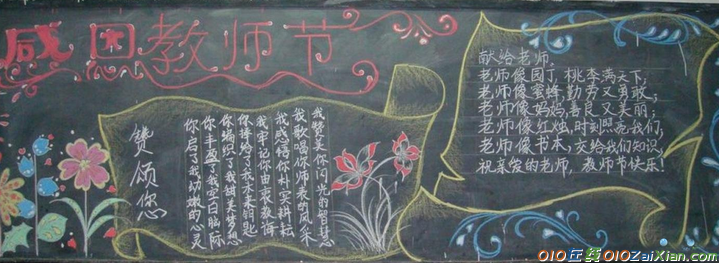 感恩教师节
赞颂您
你启了我幼嫩的心灵
你丰盈了我空白脑际
你编织了我甜美梦想
你择给了我未来钥匙
我牢记你由衷教诲
我感悟你朴实耕耘
我歌唱你师表的风采
我赞美你闪光的智慧
献给老师
老师像园丁,桃李满天下;
老师像蜜蜂,勤劳又勇敢;
老师像妈妈,善良又美丽;
老师像红烛,时刻照亮我们;
老师像书本,交给我们知识;
祝亲爱的老师,教师节快乐!
010在线010ZaiXian.com